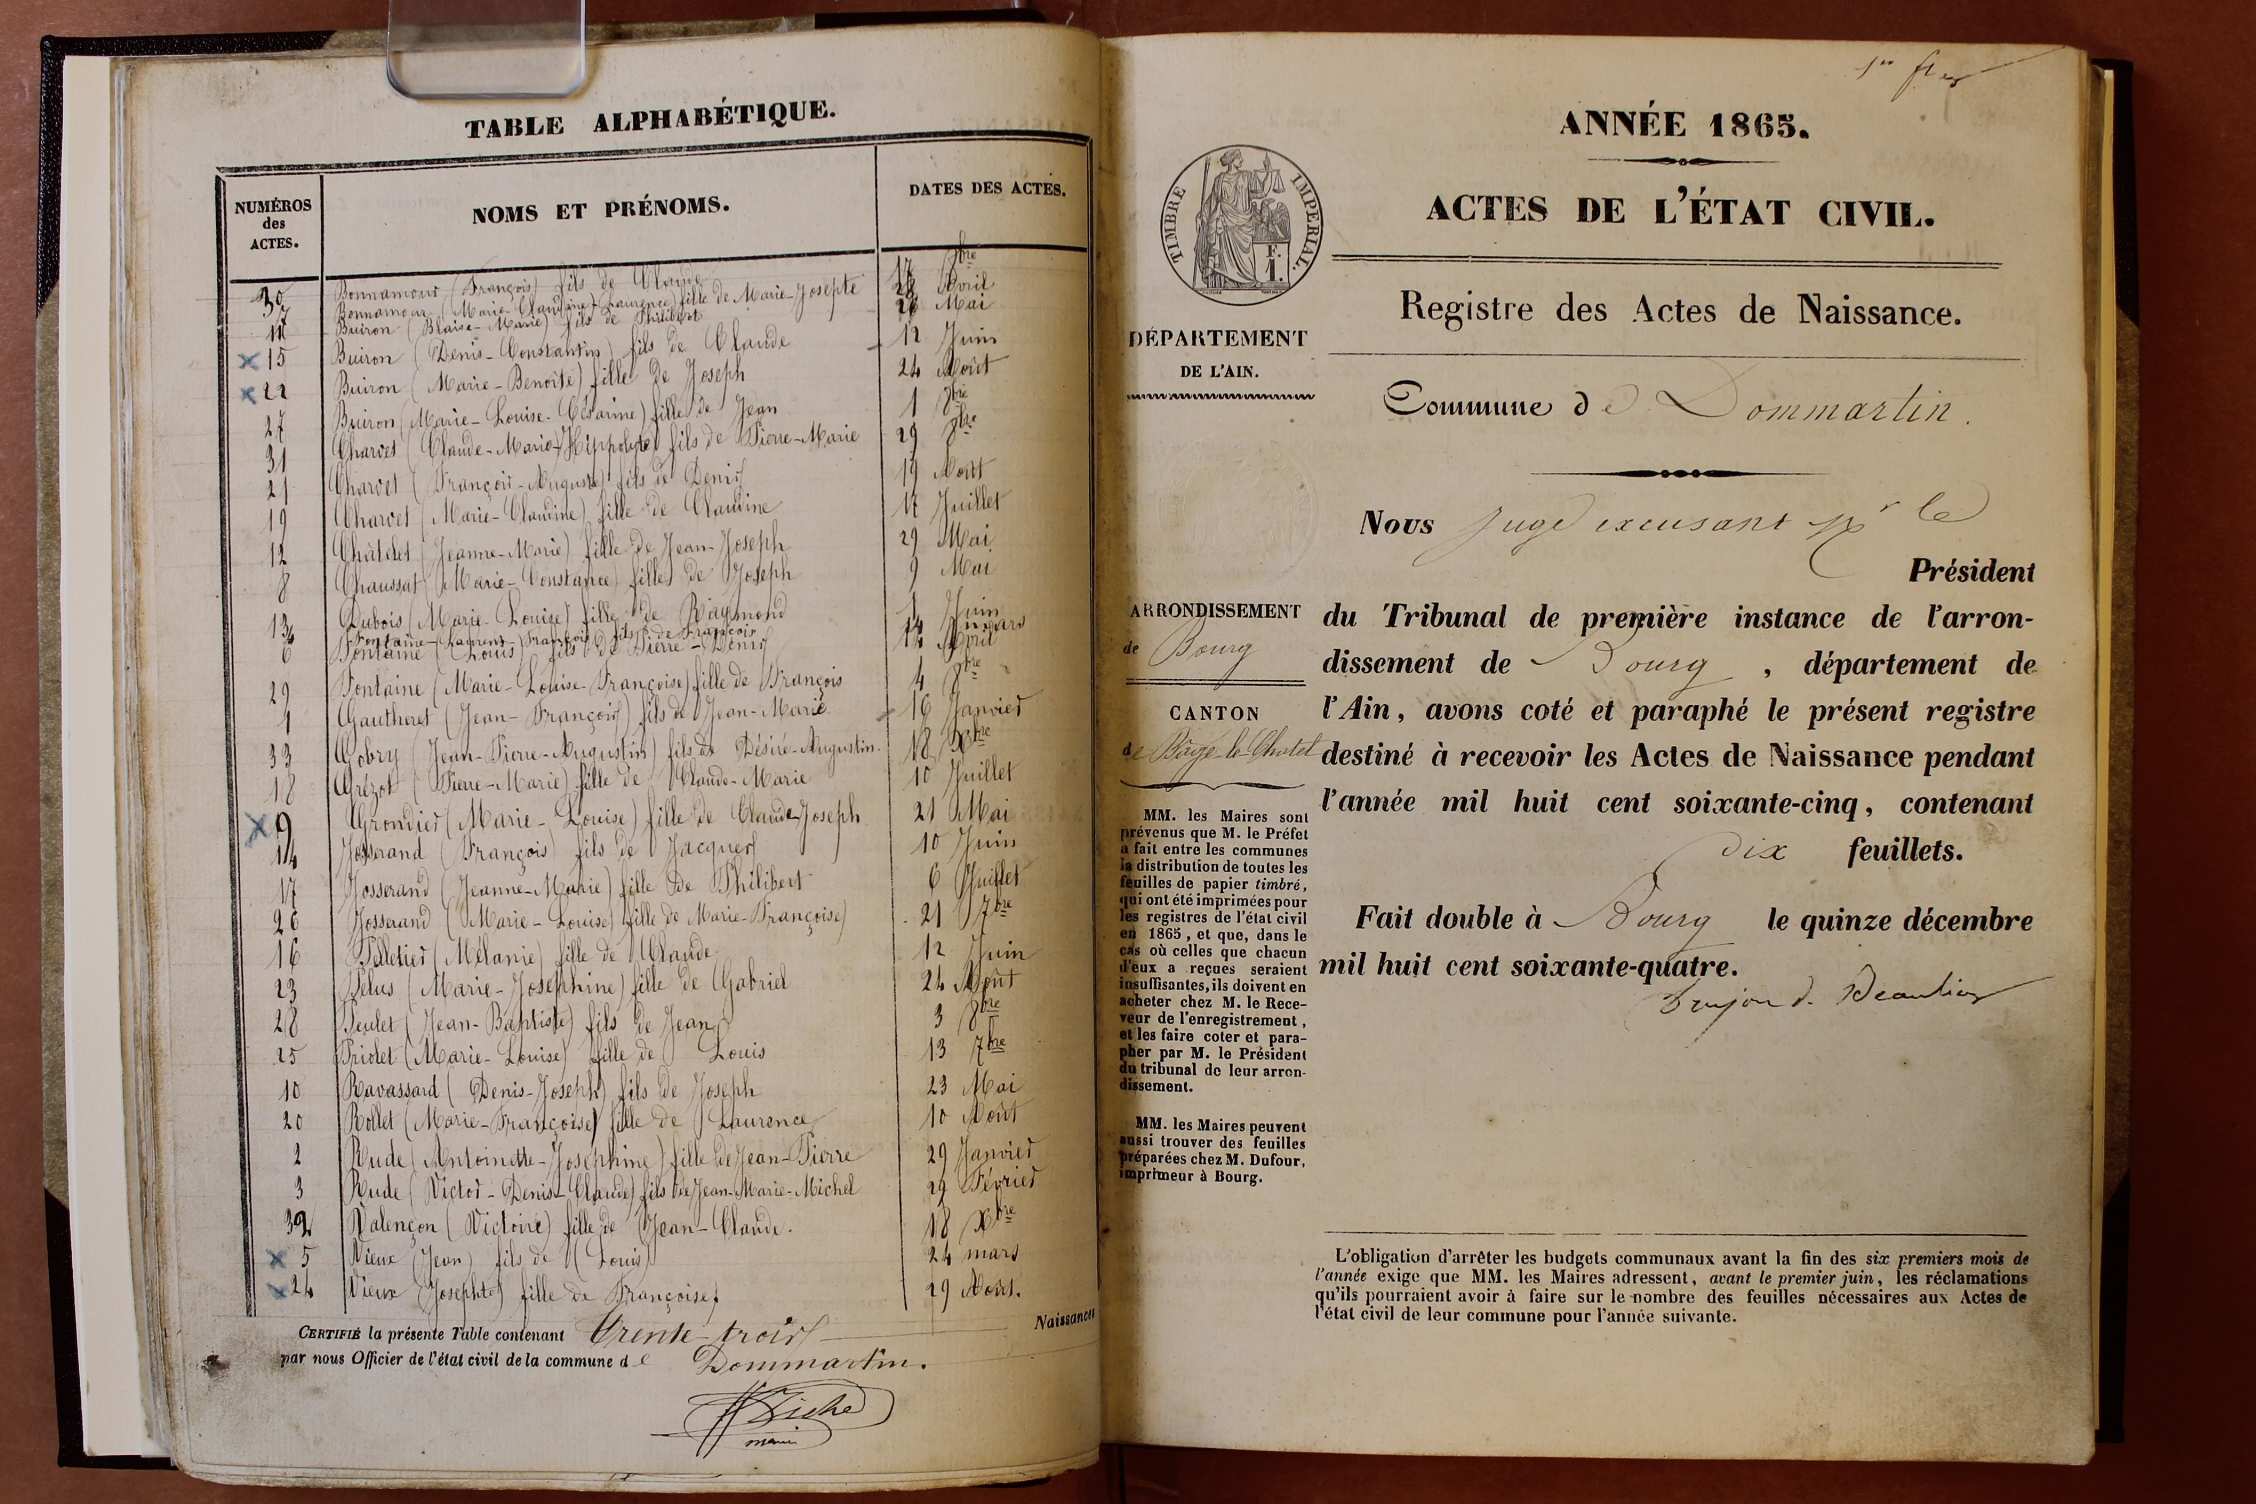 TABLE ALPHABÉTIQUE.
NUMÉROS des ACTES. NOMS ET PRÉNOMS. DATES DES ACTES.
30 Bonnamour (François) fils de Claude 17 8bre
7 Bonnamour (Marie-Claudine-Laurence) fille de Marie-Josephte 28 Avril
11 Buiron (Blaise-Marie) fils de Philibert 26 Mai
15 Buiron (Denis-Constantin) fils de Claude 12 Juin
22 Buiron (Marie-Benoite) fille de Joseph 24 Août
27 Buiron (Marie-Louise-Césarine) fille de Jean 1 8bre
31 Charvet (Claude-Marie-Hippolyte) fils de Pierre-Marie 29 8bre
21 Charvet (François-Auguste) fils de Denis 19 Août
19 Charvet (Marie-Claudine) fille de Claudine 17 Juillet
12 Châtelet (Jeanne-Marie) fille de Jean-Joseph 29 Mai
8 Chaussat (Marie-Constance) fille de Joseph 9 Mai
13 Dubois (Marie-Louise) fille de Raymond 1 Juin
Fontaine-Laurent-François fils de François 14 mars
6 Fontaine (Louis) fils de Pierre-Denis 12 Avril
29 Fontaine (Marie-Louise-Françoise) fille de François 4 8bre
1 Gautheret (Jean-François) fils de Jean-Marie 16 Janvier
33 Gobry (Jean-Pierre-Augustin) fils de Désiré-Augustin. 18 Xbre
18 Grézot (Pierre-Marie) fille de Claude-Marie 10 Juillet
9 Grondier (Marie-Louise) fille de Claude-Joseph 21 Mai
14 Josserand (François) fils de Jacques 10 Juin
17 Josserand (Jeanne-Marie) fille de Philibert 6 Juillet
26 Josserand (Marie-Louise) fille de Marie-Françoise 21 7bre
16 Pelletier (Mélanie) fille de Claude 12 Juin
23 Pelus (Marie-Josephine) fille de Gabriel 24 Août
28 Peulet (Jean-Baptiste) fils de Jean 3 8bre
25 Priolet (Marie-Louise) fille de Louis 13 7bre
10 Ravassard (Denis-Joseph) fils de Joseph 23 Mai
20 Rollet (Marie-Françoise) fille de Laurence 10 Août
2 Rude (Antoinette-Josephine) fille de Jean-Pierre 29 Janvier
3 Rude (Victor-Denis-Claude) fils de Jean-Marie-Michel 29 Février
32 Valençon (Victoire) fille de Jean-Claude. 18 Xbre
5 Vieux (Jean) fils de (Louis) 24 mars
24 Vieux (Josephte) fille de Françoise 29 Août.
CERTIFIÉ la présente Table contenant Trente-trois Naissances
par nous Officier de l'état civil de la commune de Dommartin.
maire
ANNÉE 1865.
ACTES DE L'ÉTAT CIVIL.
TIMBRE IMPERIAL.
F.
1.
Registre des Actes de Naissance.
DÉPARTEMENT
DE L'AIN.
Commune de Dommartin.
Nous Juge excusant Mr le
Président
ARRONDISSEMENT
de Bourg
CANTON
de Bâgé-le-Chatel
du Tribunal de première instance de l'arron-
dissement de Bourg, département de
l'Ain, avons coté et paraphé le présent registre
destiné à recevoir les Actes de Naissance pendant
l'année mil huit cent soixante-cinq, contenant
dix feuillets.
Fait double à Bourg le quinze décembre
mil huit cent soixante-quatre.
MM. les Maires sont
prévenus que M. le Préfet
a fait entre les communes
la distribution de toutes les
feuilles de papier timbré,
qui ont été imprimées pour
les registres de l'état civil
en 1865, et que, dans le
cas où celles que chacun
d'eux a reçues seraient
insuffisantes, ils doivent en
acheter chez M. le Rece-
veur de l'enregistrement,
et les faire coter et para-
pher par M. le Président
du tribunal de leur arron-
dissement.
MM. les Maires peuvent
aussi trouver des feuilles
préparées chez M. Dufour,
imprimeur à Bourg.
L'obligation d'arrêter les budgets communaux avant la fin des six premiers mois de
l'année exige que MM. les Maires adressent, avant le premier juin, les réclamations
qu'ils pourraient avoir à faire sur le nombre des feuilles nécessaires aux Actes de
l'état civil de leur commune pour l'année suivante.